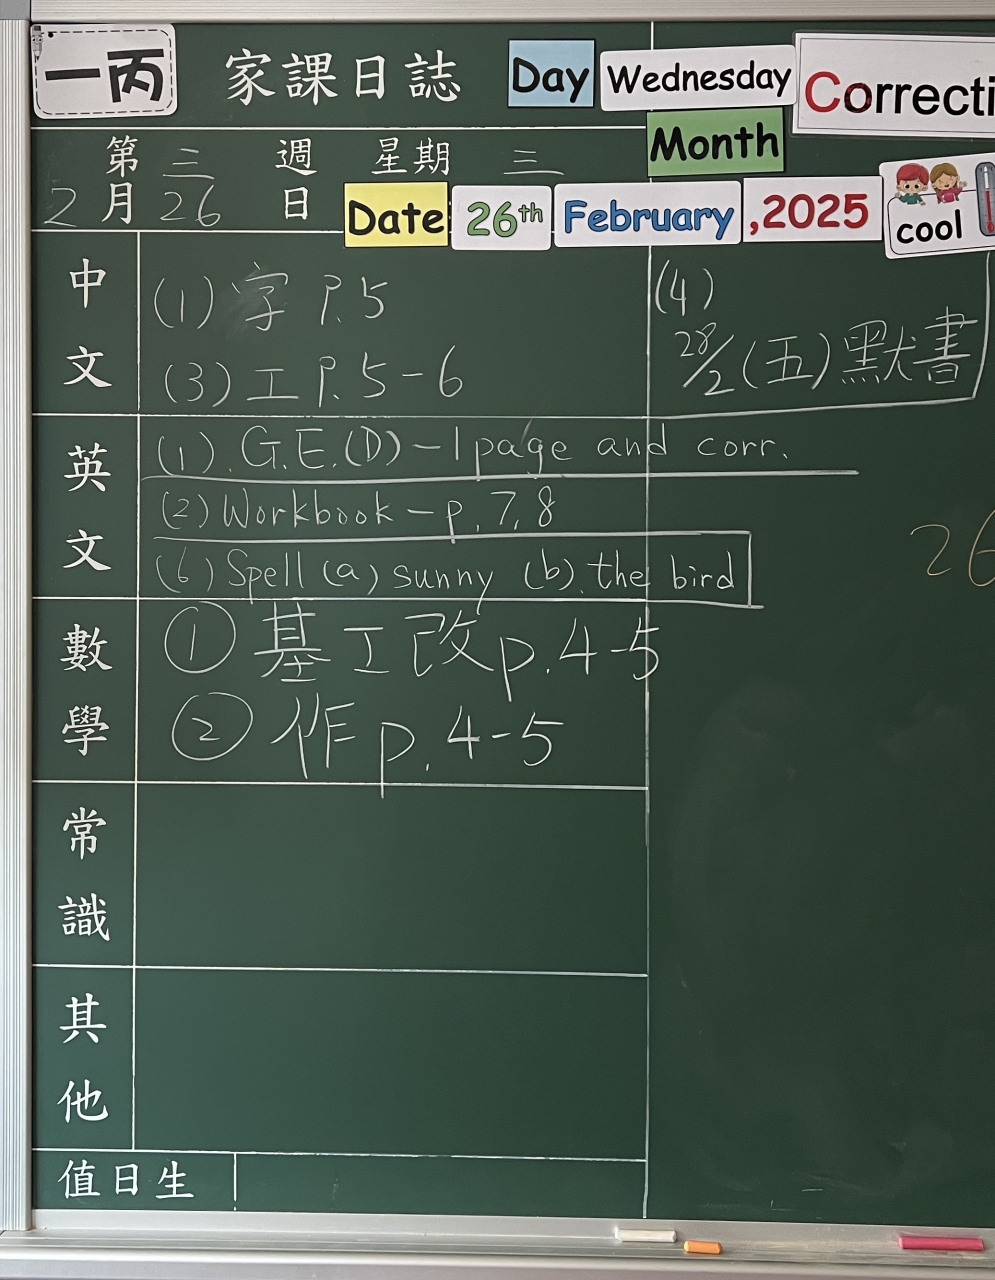 一丙 家課日誌 Day Wednesday Correcti
Month
第三週 星期三
2月26日 Date 26th February ,2025 cool
中文
(1) 字 P.5
(3) 工 P.5-6
(4)
28/2 (五) 默書
英文
(1). G.E.(D) – 1 page and corr.
(2) Workbook – p. 7, 8
(6) Spell (a) sunny (b). the bird
26
數學
① 基工改 p.4-5
② 作 p.4-5
常識
其他
值日生